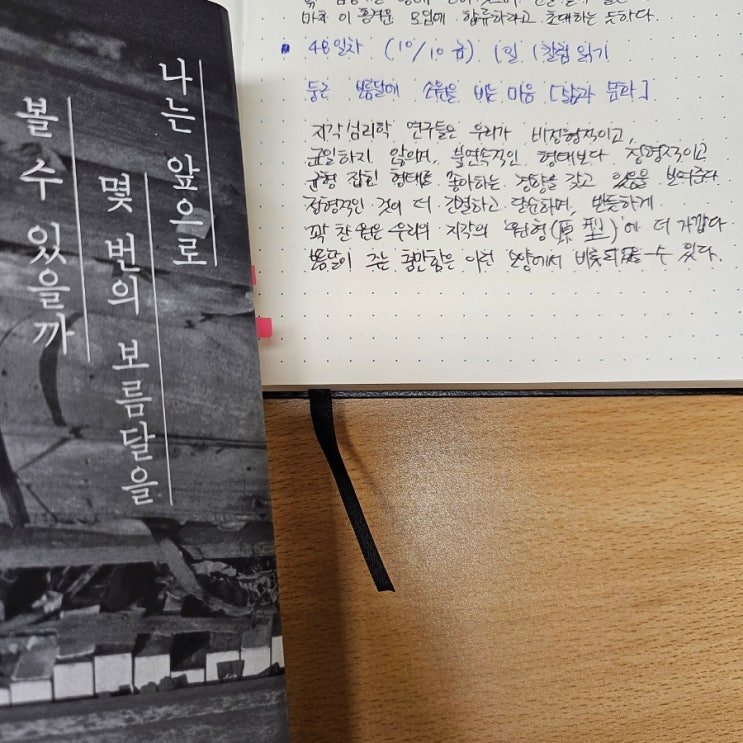 나는 앞으로
몇 번의 보름달을
볼 수 있을까
마치 이 즐거운 모임에 합류하라고 초대하는 듯하다.
48일차 (10/10 금) 1일 1칼럼 읽기
둥근 보름달에 소원을 비는 마음 [삶과 문화]
지각심리학 연구들은 우리가 비정형적이고,
균일하지 않으며, 불연속적인 형태보다 정형적이고
균형 잡힌 형태를 좋아하는 경향을 갖고 있음을 보여준다.
정형적인 것이 더 간결하고 단순하며, 반듯하게
꽉 찬 원은 우리의 지각의 '원형(原型)'에 더 가깝다.
보름달이 주는 충만함은 이런 모양에서 비롯되는 수 있다.